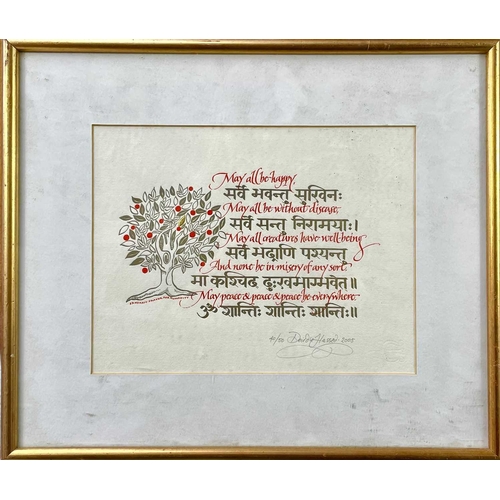 May all be happy,
सर्वे भवन्तु सुखिनः
May all be without disease,
सर्वे सन्तु निरामयाः।
May all creatures have well-being
सर्वे भद्राणि पश्यन्तु
And none be in misery of any sort.
मा कश्चिद् दुःखभाग्भवेत्॥
May peace & peace & peace be everywhere.
ॐ शान्तिः शान्तिः शान्तिः॥
2005